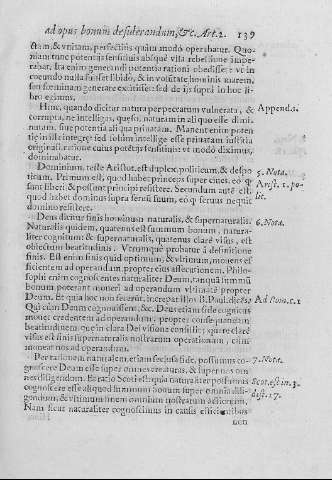 ad opus bonum desiderandum, &c. Art. 2. 139
ctam, & vnitam, perfectius quàm modò operabatur. Quo-
niam tunc potentiæ sensitiuis absque vlla rebellione impe-
rabat. Ita enim generandi potentia rationi obedisset: vt in
coeundo nulla fuisset libido, & in voluntate hominis marem,
seu fœminam generare extitisset: sed de ijs supri in hoc li-
bro egimus.
Hinc, quando dicitur natura per peccatum vulnerata, &
corrupta, ne intelligas, quæso, naturam in aliquo esse dimi-
nutam, siue potentia aliqua priuatam. Manent enim poten-
tiæ illæ integræ: sed solùm intellige esse priuatam iustitia
originali, ratione cuius potétijs sensitiuis: vt modò diximus,
dominabatur.
Append. 2.
Dominium, teste Aristot. est duplex, politicum, & despo
ticum. Primum est, quod habet princeps super ciues, eò q
sunt liberi & possunt principi resistere. Secundum autē est,
quod habet dominus supra seruum suum, eò q seruus nequit
domino resistere.
5. Nota.
Arist. 1. po-
lit.
Deus dicitur finis hominum naturalis, & supernaturalis.
Naturalis quidem, quatenus est summum bonum, natura-
liter cognitum: & supernaturalis, quatenus clarè visus, est
obiectum beatitudinis. Verumque probatur à definitione
finis. Est enim finis quid optimum, & vltimum, mouens ef-
ficientem ad operandum propter eius assecutionem. Philo-
sophi enim cognoscentes naturaliter Deum, tanquā summū
bonum poterant moneri ad operandum vltimatè propter
Deum. Et quia hoc non fecerūt, increpat illos B. Paul. dicēs,
Qui cùm Deum cognouissent, &c. Deus etiam fide cognitus
mouet credentem ad operandum, propter consequendam
beatitudinem, quæ in clara Dei visione consistit; quare clarè
visus est finis supernaturalis nostrarum operationum, cùm
moueat nos ad operandum.
6. Nota.
Ad Rom. c. 1
Per rationem naturalem, etiam seclusa fide, possumus co-
gnoscere Deum esse super omnes creaturas, & super nos om-
nes diligendum. Et ratio Scoti est, quia naturaliter possumus
cognoscere esse aliquod summum bonum super omnia dili-
gendum, & vltimum finem omnium nostrarum actionum,
Nam sicut naturaliter cognoscimus in causis efficientibus
7. Nota.
Scot. est in 3.
dist. 27.
non